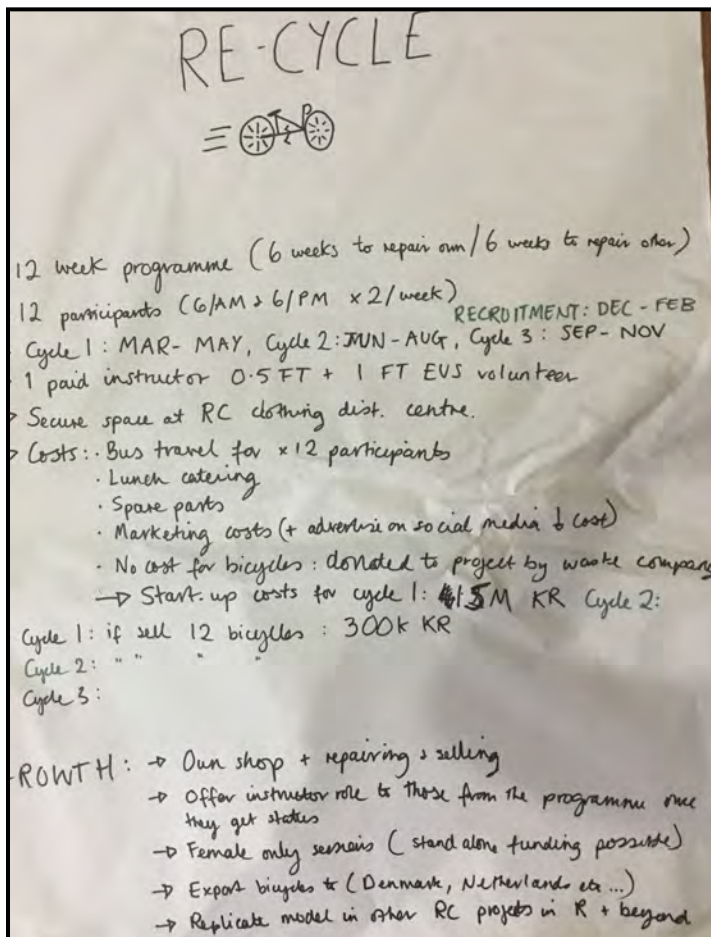 RE-CYCLE
12 week programme (6 weeks to repair own / 6 weeks to repair other)
12 participants (6/AM & 6/PM x2/week)
RECRUITMENT: DEC - FEB
Cycle 1: MAR - MAY, Cycle 2: JUN - AUG, Cycle 3: SEP - NOV
1 paid instructor 0.5 FT + 1 FT EVS volunteer
Secure space at RC clothing dist. centre.
Costs: · Bus travel for x12 participants
· Lunch catering
· Spare parts
· Marketing costs (+ advertise on social media ↓ cost)
· No cost for bicycles: donated to project by waste company
→ Start-up costs for cycle 1: 1.5M KR Cycle 2:
Cycle 1: if sell 12 bicycles : 300k KR
Cycle 2: " " " "
Cycle 3:
ROWTH: → Own shop + repairing & selling
→ Offer instructor role to those from the programme once
they get status
→ Female only sessions (stand alone funding possible)
→ Export bicycles to (Denmark, Netherlands etc...)
→ Replicate model in other RC projects in R + beyond